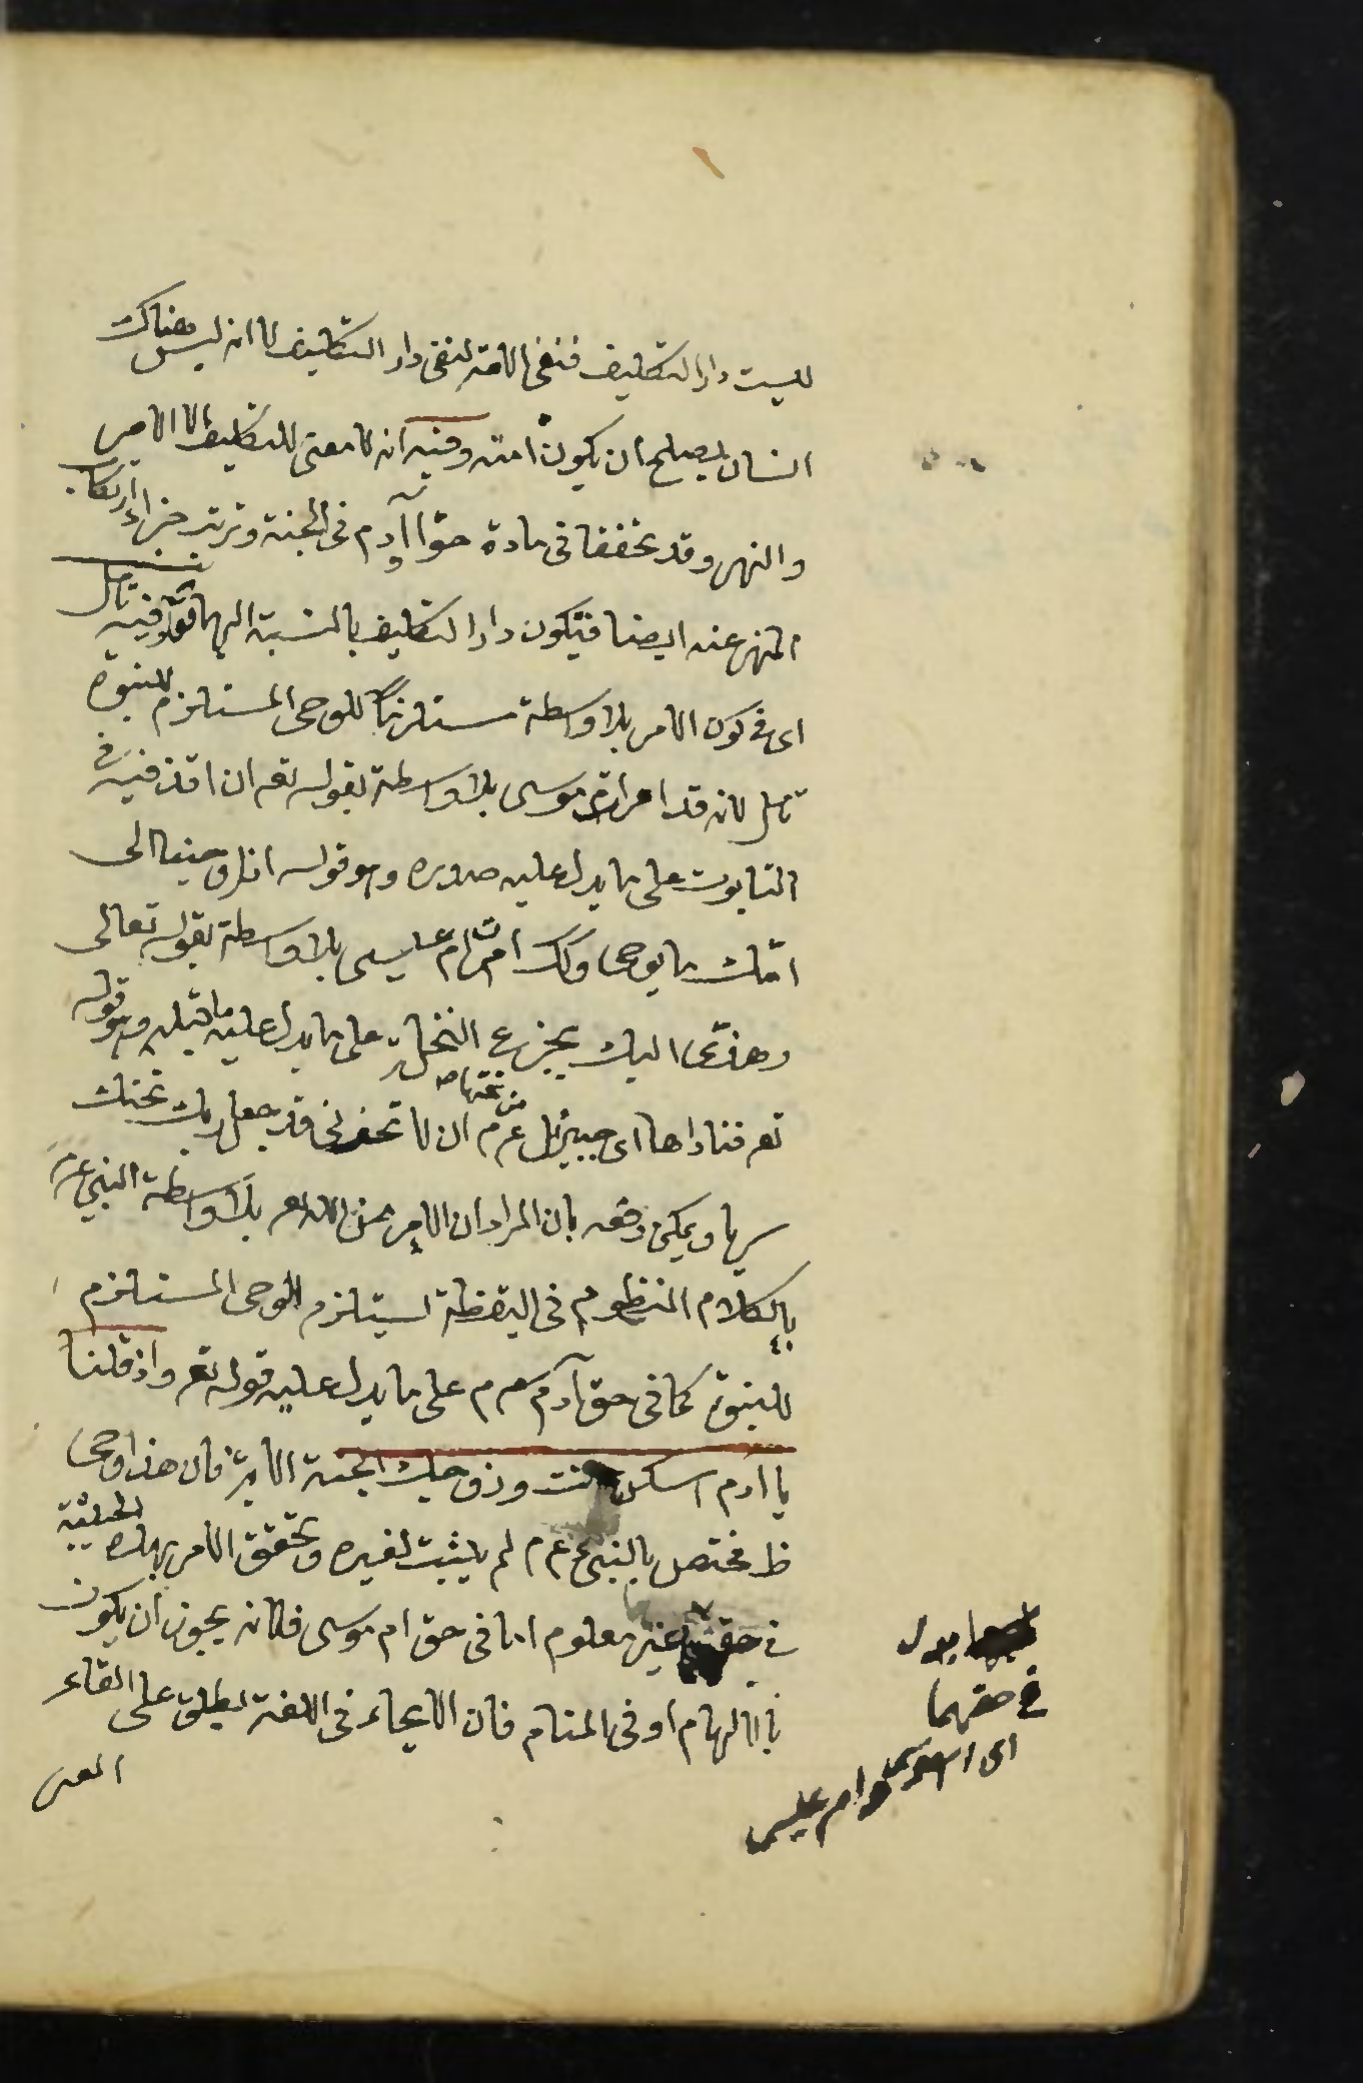 ليست دار التكليف فنفى الامة لنفى دار التكليف لا انه ليس هناك
انسان يصلح ان يكون امته وفيه انه لا معنى للتكليف الا الامر
والنهى وقد تحققا فى مادة حوا وآدم فى الجنة وترتب جزاء ارتكاب
المنهى عنه ايضا فيكون دار التكليف بالنسبة اليهما قوله وفيه تامل
اى فى كون الامر بلا واسطة مستلزما للوحى المستلزم للنبوة
تامل لانه قد امر ام موسى بلا واسطة بقوله تعم ان اقذفيه فى
التابوت على ما يدل عليه صدوره وهو قوله اذ اوحينا الى
امك ما يوحى وكك امر ام عيسى بلا واسطة بقوله تعالى
وهزى اليك بجزع النخلة على ما يدل عليه ما قبله وهو قوله
تعم فناداها اى جبرئيل عرم من تحتها صح ان لا تحزنى قد جعل ربك تحتك
سريا ويمكن دفعه بان المراد ان الامر من الله تعم بلا واسطة النبى عم
بالكلام المنظوم فى اليقظة يستلزم الوحى المستلزم
للنبوة كما فى حق آدم عرم على ما يدل عليه قوله تعم واذ قلنا
يا آدم اسكن انت وزوجك الجنة الآية فان هذا وحى
ظ مختص بالنبى عرم لم يثبت لغيره وتحقق الامر بهذه الحيثية
فى حقهما غير معلوم اما فى حق ام موسى فلانه يجوز ان يكون
بالالهام او فى المنام فان الايحاء فى اللغة يطلق على القاء
المعنى
بدل
فى حقهما
اى ام موسى وام عيسى